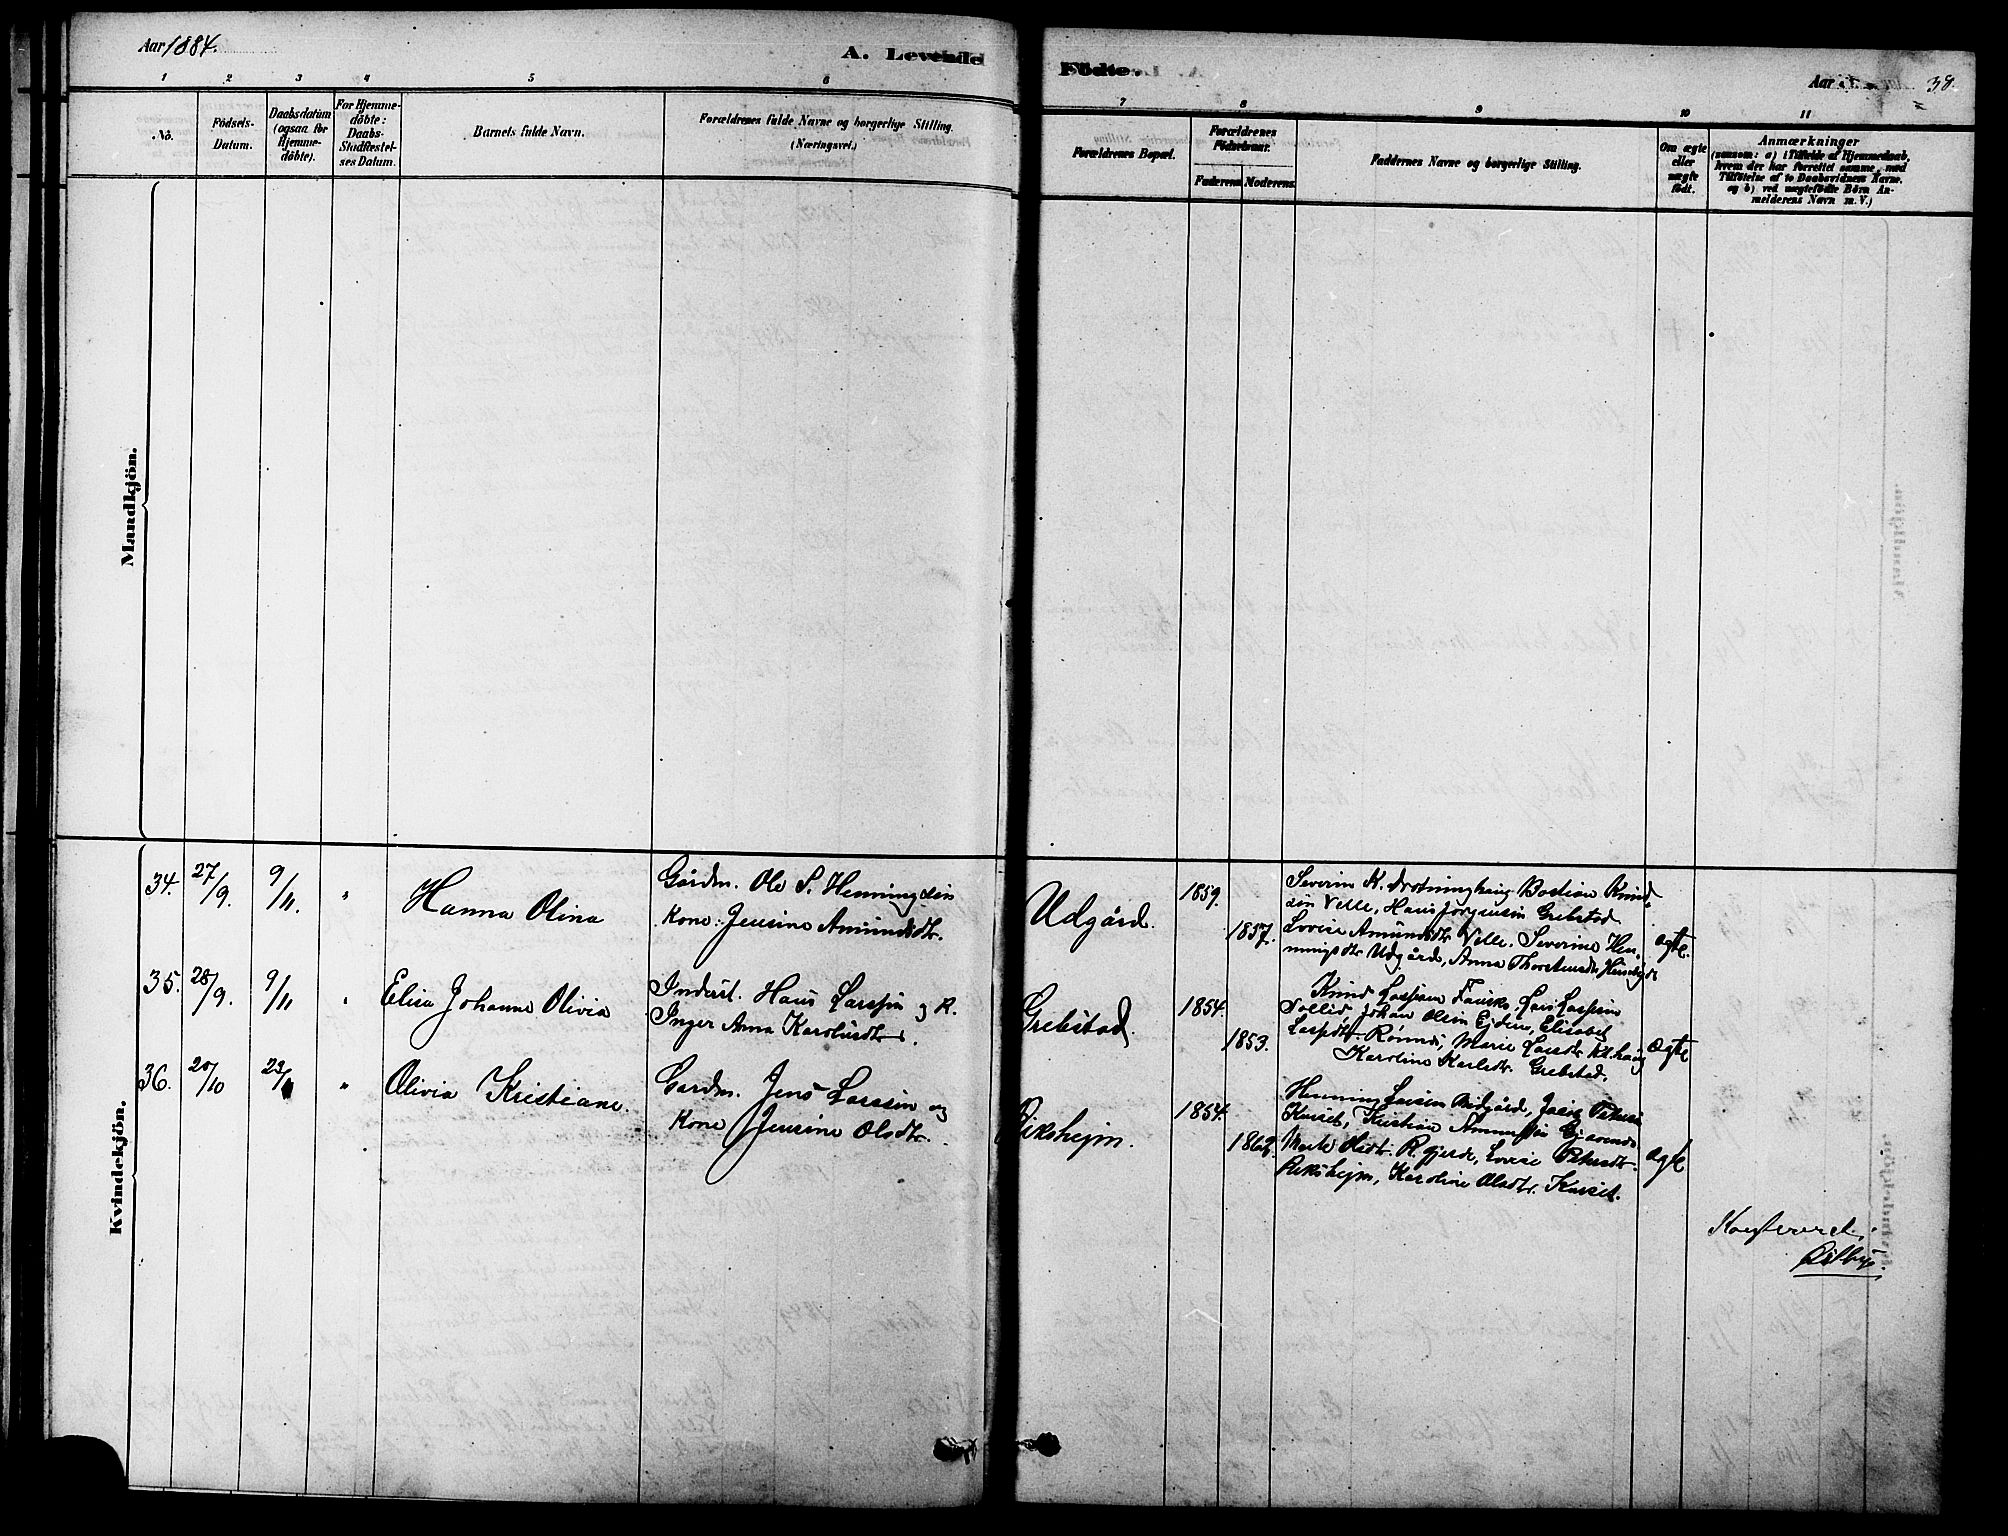 Aar 1884.
A. Levende
Fødte.
Aar
38.
1 2 3 4 5 6
7 8 9 10 11
No.
Födsels-
Datum.
Daabsdatum
(ogsaa for
Hjemme-
döbte).
For Hjemme-
döbte:
Daabs-
Stadfæstel-
ses Datum.
Barnets fulde Navn.
Forældrenes fulde Navne og borgerlige Stilling.
(Næringsvei.)
Forældrenes Bopæl.
Forældrenes
Födselsaar.
Faderens. Moderens.
Faddernes Navne og borgerlige Stilling.
Om ægte
eller
uægte
födt.
Anmærkninger
(saasom: a) i Tilfælde af Hjemmedaab,
hvem der har forrettet samme, med
Tilföielse af to Daabsvidners Navne.
og b) ved uægtefödte Börn An-
melderens Navn m. V.)
Mandkjön.
Kvindekjön.
34. 27/9. 9/11. " Hanna Olina
Gårdm. Ole S. Henningsen
Kone: Jensine Amundsdtr.
Udgård. 1859. 1857.
Severin K. Drotninghaug Bastian Knud-
sen Velle, Hans Jørgensen Grebstad
Lovise Amundsdtr Velle. Severine Hen-
ningsdtr Udgård, Anna Thorstensdtr
ægte.
35. 28/9. 9/11 " Elisa Johanne Olivia
Inderst. Hans Larssen og K.
Inger Anna Karolusdtr.
Grebstad. 1854. 1853.
Knud Larssen Lars Larssen
Sollid, Johan Olsen Ejdem, Elisabet
Larsdtr. Marie Larsdtr
Karoline Karlsdtr. Grebstad.
ægte
36. 20/10 23/11 " Olivia Kristiane.
Gardm. Jens Larssen og
Kone Jensine Olsdtr.
Rikshejm. 1854. 1862.
Henning Larsen Midgård,
Kurset, Kristian
Olsdtr. Lovise Petersdtr.
Rikshejm, Karoline Olsdtr. Kurset.
ægte
Konfereret.
Østbye.